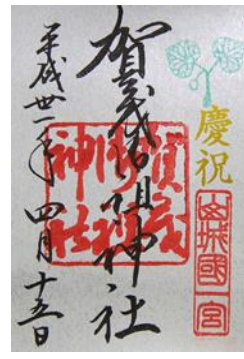 慶祝
山城國一宮
賀茂御祖神社
賀茂御祖神社
平成卅一年四月十五日